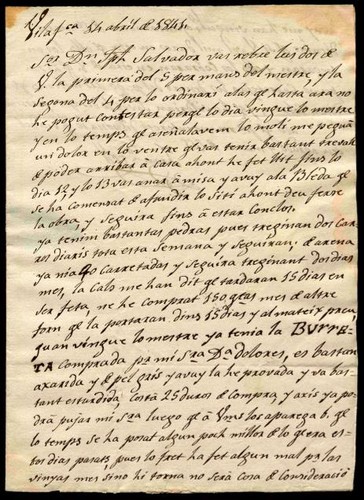 Vilafca 14 abril de 1841
Sor Dn Jph Salvador vas rebre las dos de
V. la primera del 5 per mans del mestre, y la
segona del 4 per lo ordinari alas q hasta ara no
he pogut contestar perq lo dia vingue lo mestre
y en lo temps q aseñalavem lo moli me pegua
un dolor en lo ventre q vas tenir bastant trevall
de poder arribar â Casa ahont he fet llit fins lo
dia 12 y lo 13 vas anar â misa y avuy ala 13
se ha comensat de afundir lo siti ahont deu ferse
la obra, y seguira fins â estar Conclos.
ya tenim bastantas pedras pues treginan dos Car
ros diaris tota esta Semana y Seguiran, de arena
ya nia 40 Carretadas y Seguira treginant dos dias
mes, la Calc me han dit q tardaran 15 dias en
ser feta, ne he Comprat 150 qas mes de altre
forn q la portaran dins 15 dias y al mateix preu,
quan vingue lo mestre ya tenia la Burre-
ta comprada pr mi Sra Da dolores, es bastan
axarida y de pel gris y avuy la he provada y va bas-
tant esturdida Costa 25 duros de Compra y axis ya po-
drâ pujar mi Sra luego q â Vms los aparega b. q
lo temps se ha posat algun poch millor de lo q era es-
tos dias pasats, pues lo fret ha fet algun mal pr las
vinyas mes sino hi torna no serâ Cosa de Consideració